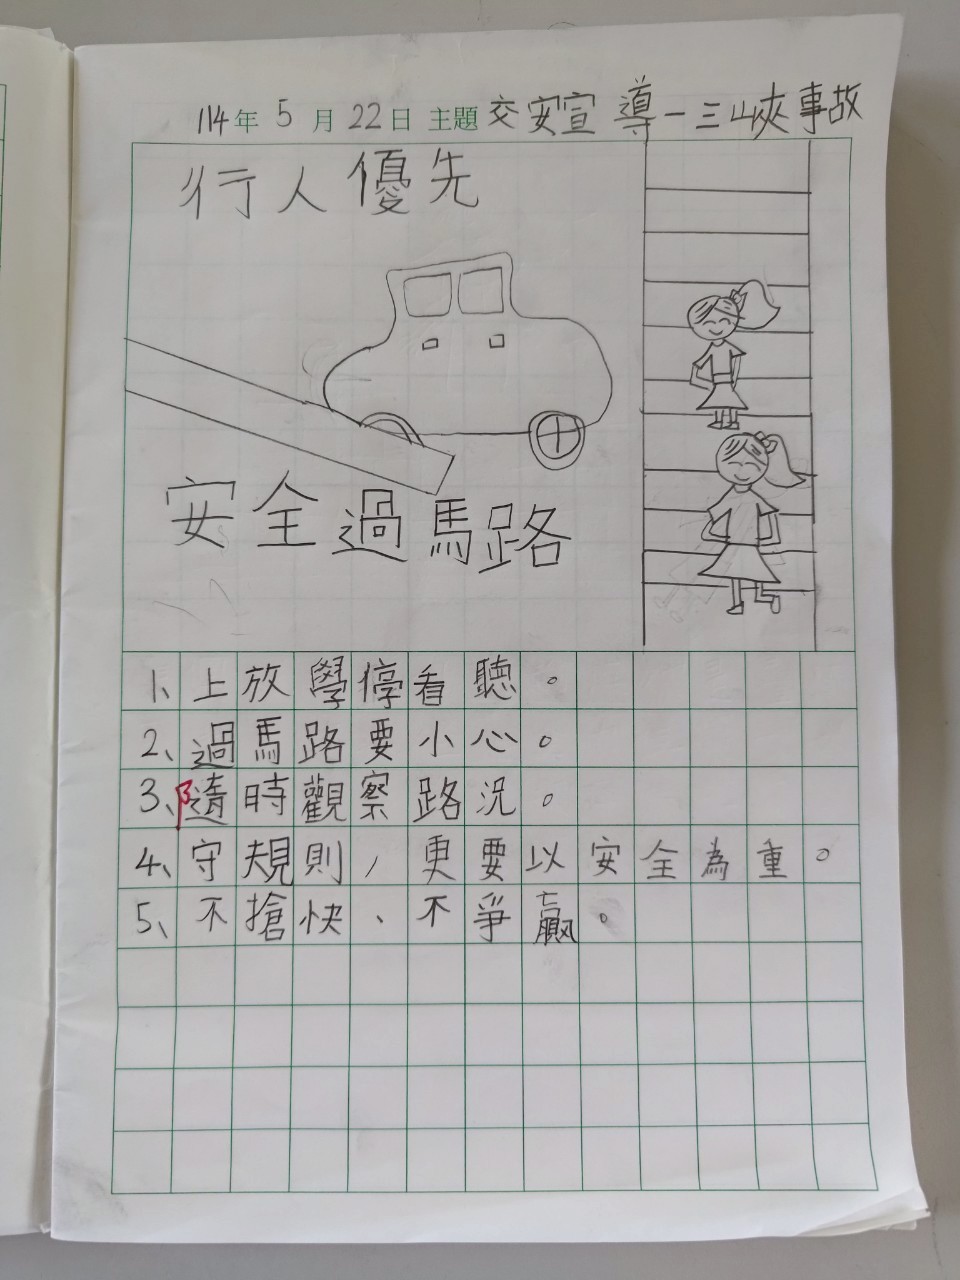 114年5月22日 主題 交安宣導－三峽事故
行人優先
安全過馬路
1、上放學停看聽。
2、過馬路要小心。
3、隨時觀察路況。
4、守規則，更要以安全為重。
5、不搶快、不爭贏。